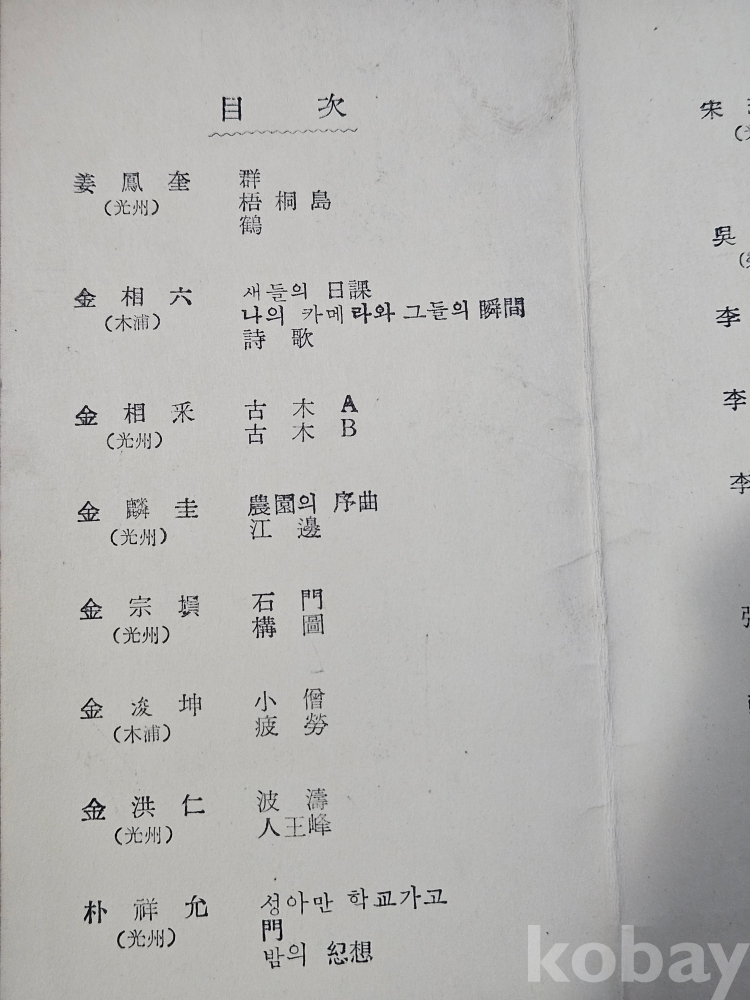 目 次
姜 鳳 奎 群
(光州) 梧 桐 島
鶴
金 相 六 새들의 日課
(木浦) 나의 카메라와 그들의 瞬間
詩 歌
金 相 采 古 木 A
(光州) 古 木 B
金 麟 圭 農園의 序曲
(光州) 江 邊
金 宗 塤 石 門
(光州) 構 圖
金 浚 坤 小 僧
(木浦) 疲 勞
金 洪 仁 波 濤
(光州) 人王峰
朴 祥 允 성아만 학교가고
(光州) 門
밤의 幻想
宋
吳
李
李
李
kobay